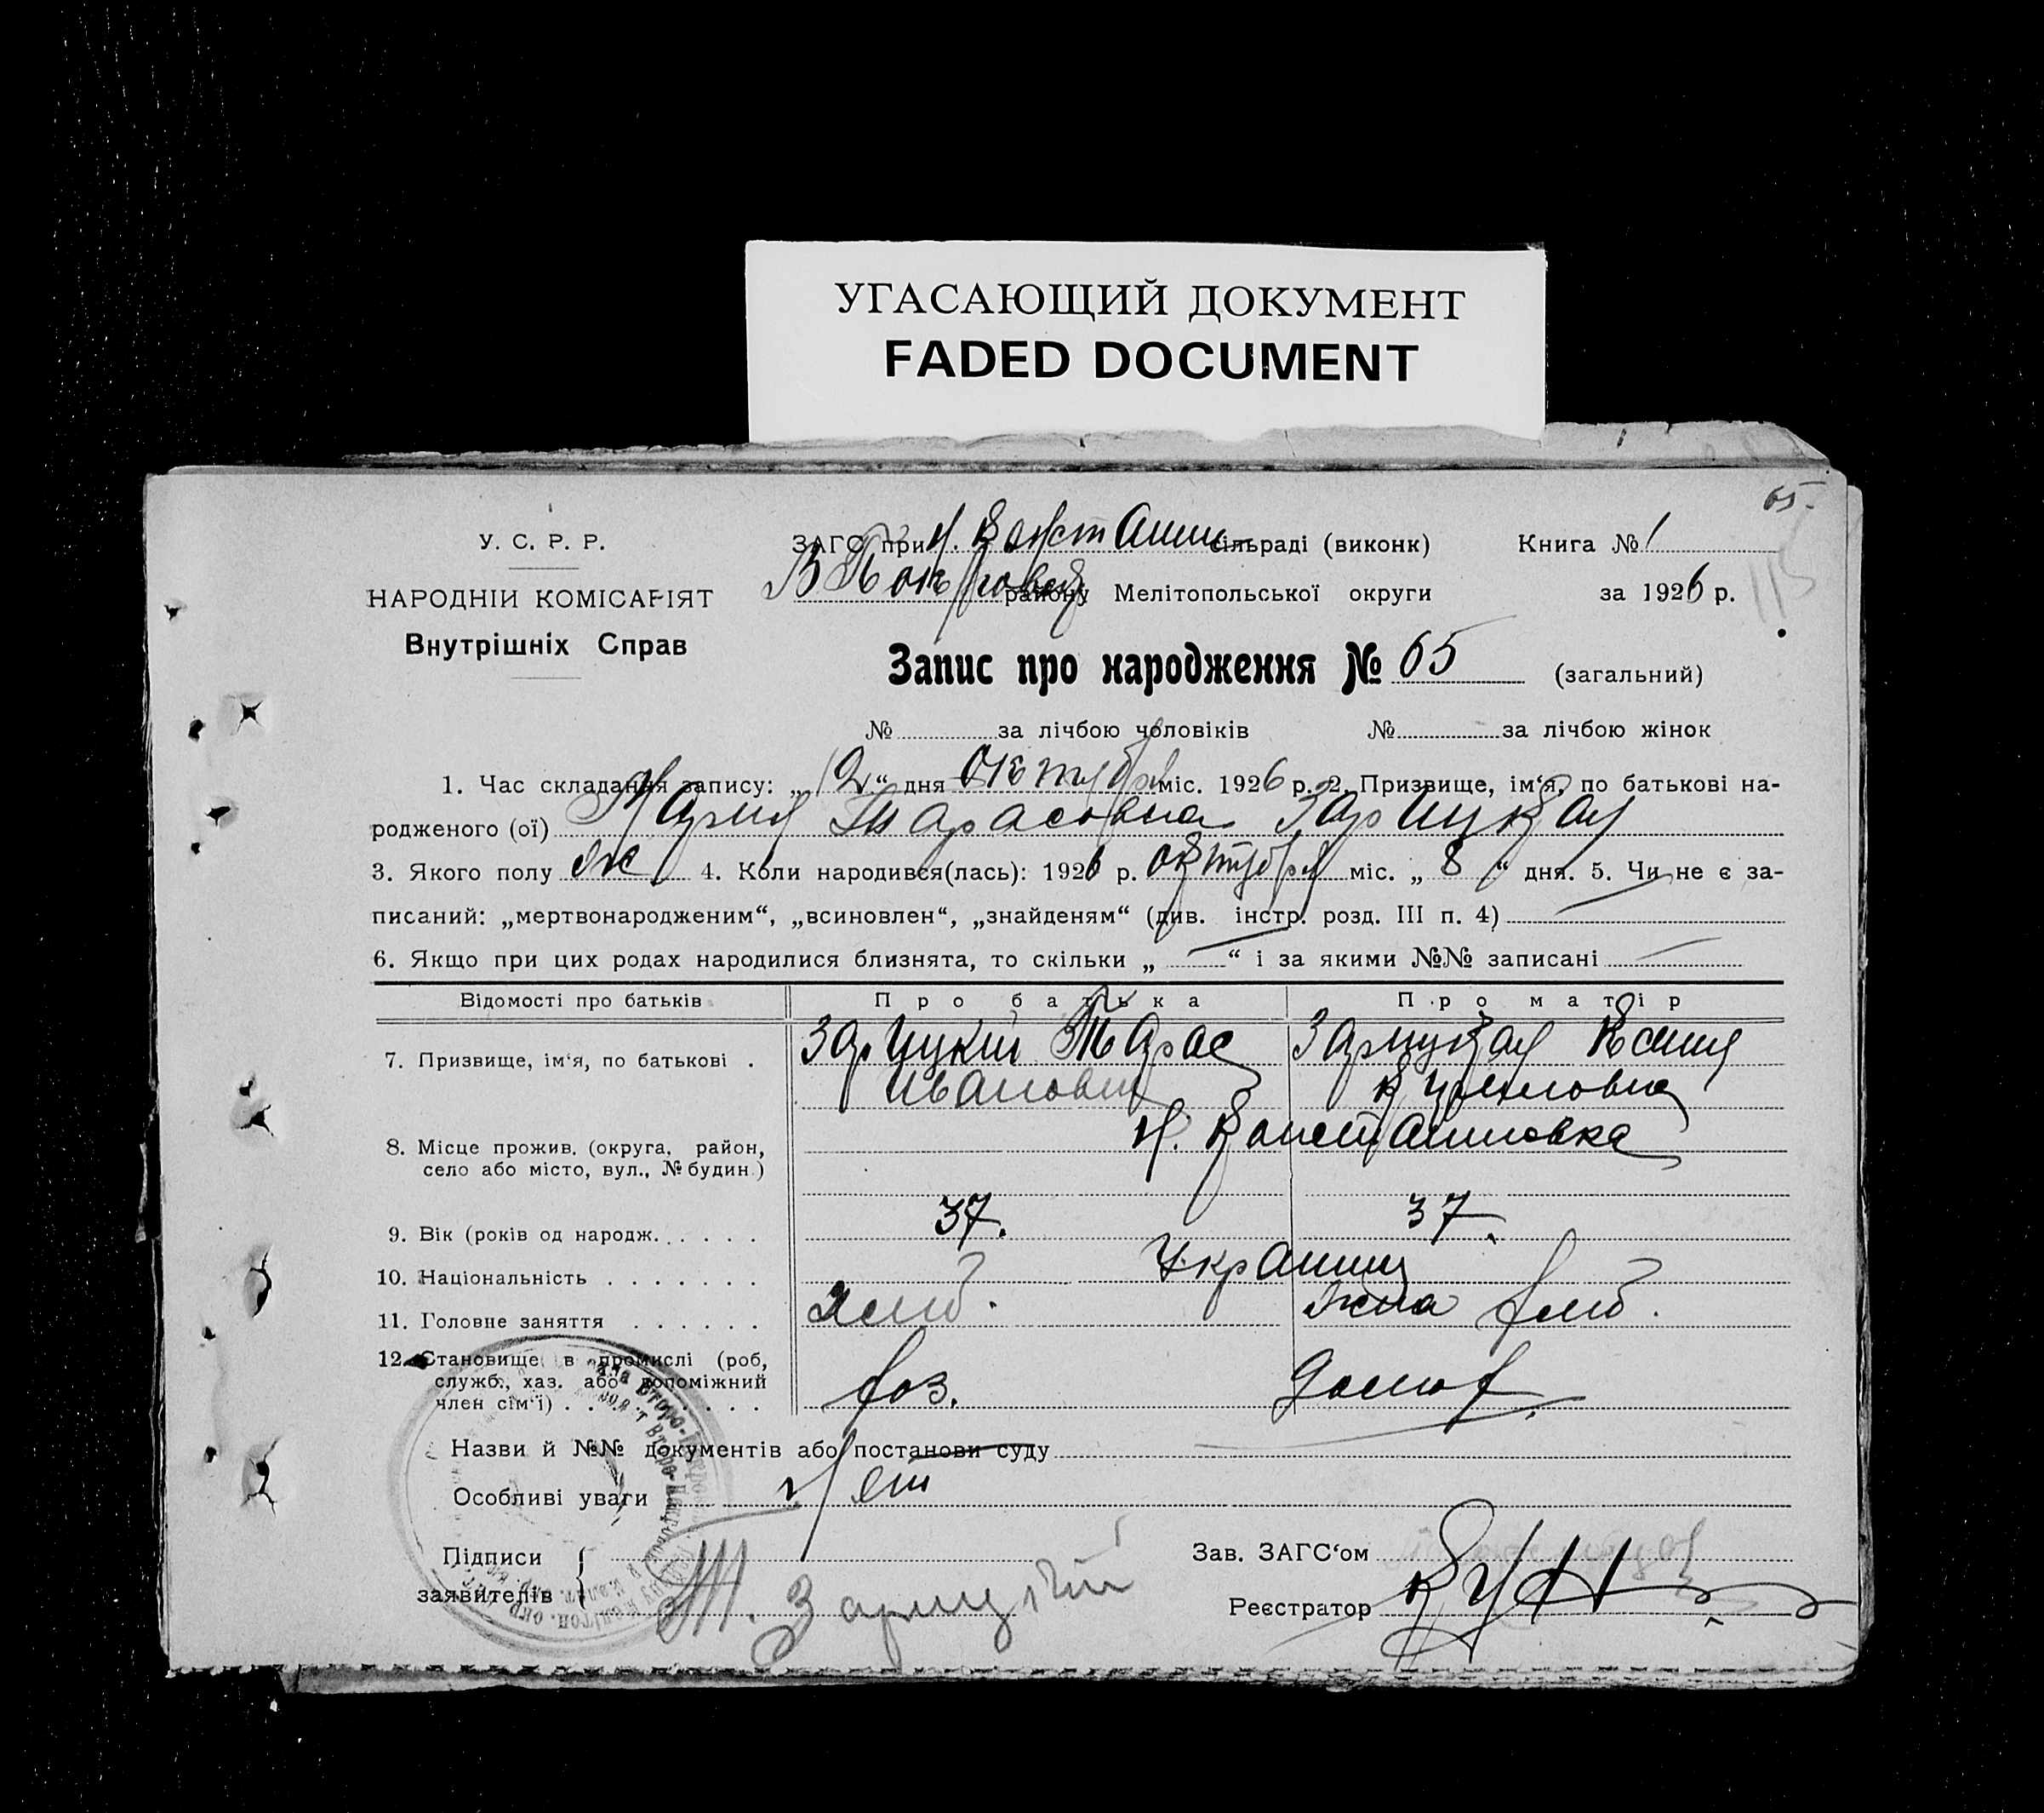 УГАСАЮЩИЙ ДОКУМЕНТ
FADED DOCUMENT
65.
У. С. Р. Р.
НАРОДНІЙ КОМІСАРІЯТ
Внутрішніх Справ
ЗАГС при Н. Констант сільраді (виконк) Книга № 1
В Покровськ району Мелітопольської округи за 1926 р.
115
Запис про народження № 65 (загальний)
№ за лічбою чоловіків № за лічбою жінок
1. Час складання запису: „12“ дня Октября міс. 1926 р. 2. Призвище, ім‘я, по батькові на-
родженого (ої) Мария Тарасовна Зарицкая
3. Якого полу ж 4. Коли народився(лась): 1926 р. октября міс. „8“ дня. 5. Чи не є за-
писаний: „мертвонародженим“, „всиновлен“, „знайденям“ (див. інстр. розд. III п. 4)
6. Якщо при цих родах народилися близнята, то скільки „ — “ і за якими №№ записані —
Відомості про батьків Про батька Про матір
7. Призвище, ім‘я, по батькові . Зарицкий Тарас Зарицкая Ксения
Иванович
Н. Константиновка
8. Місце прожив. (округа, район,
село або місто, вул., № будин.)
9. Вік (років од народж. . . . . . 37. 37.
10. Національність . . . . . . . Украинц
11. Головне заняття . . . . . . Хлеб. жена хлеб.
12. Становище в промислі (роб,
служб., хаз. або допоміжний
член сім‘ї) . . . . . . . . . хоз. домох.
Назви й №№ документів або постанови суду
Особливі уваги Нет
Підписи
заявителів Т. Зарицкий
Зав. ЗАГС‘ом
Реєстратор